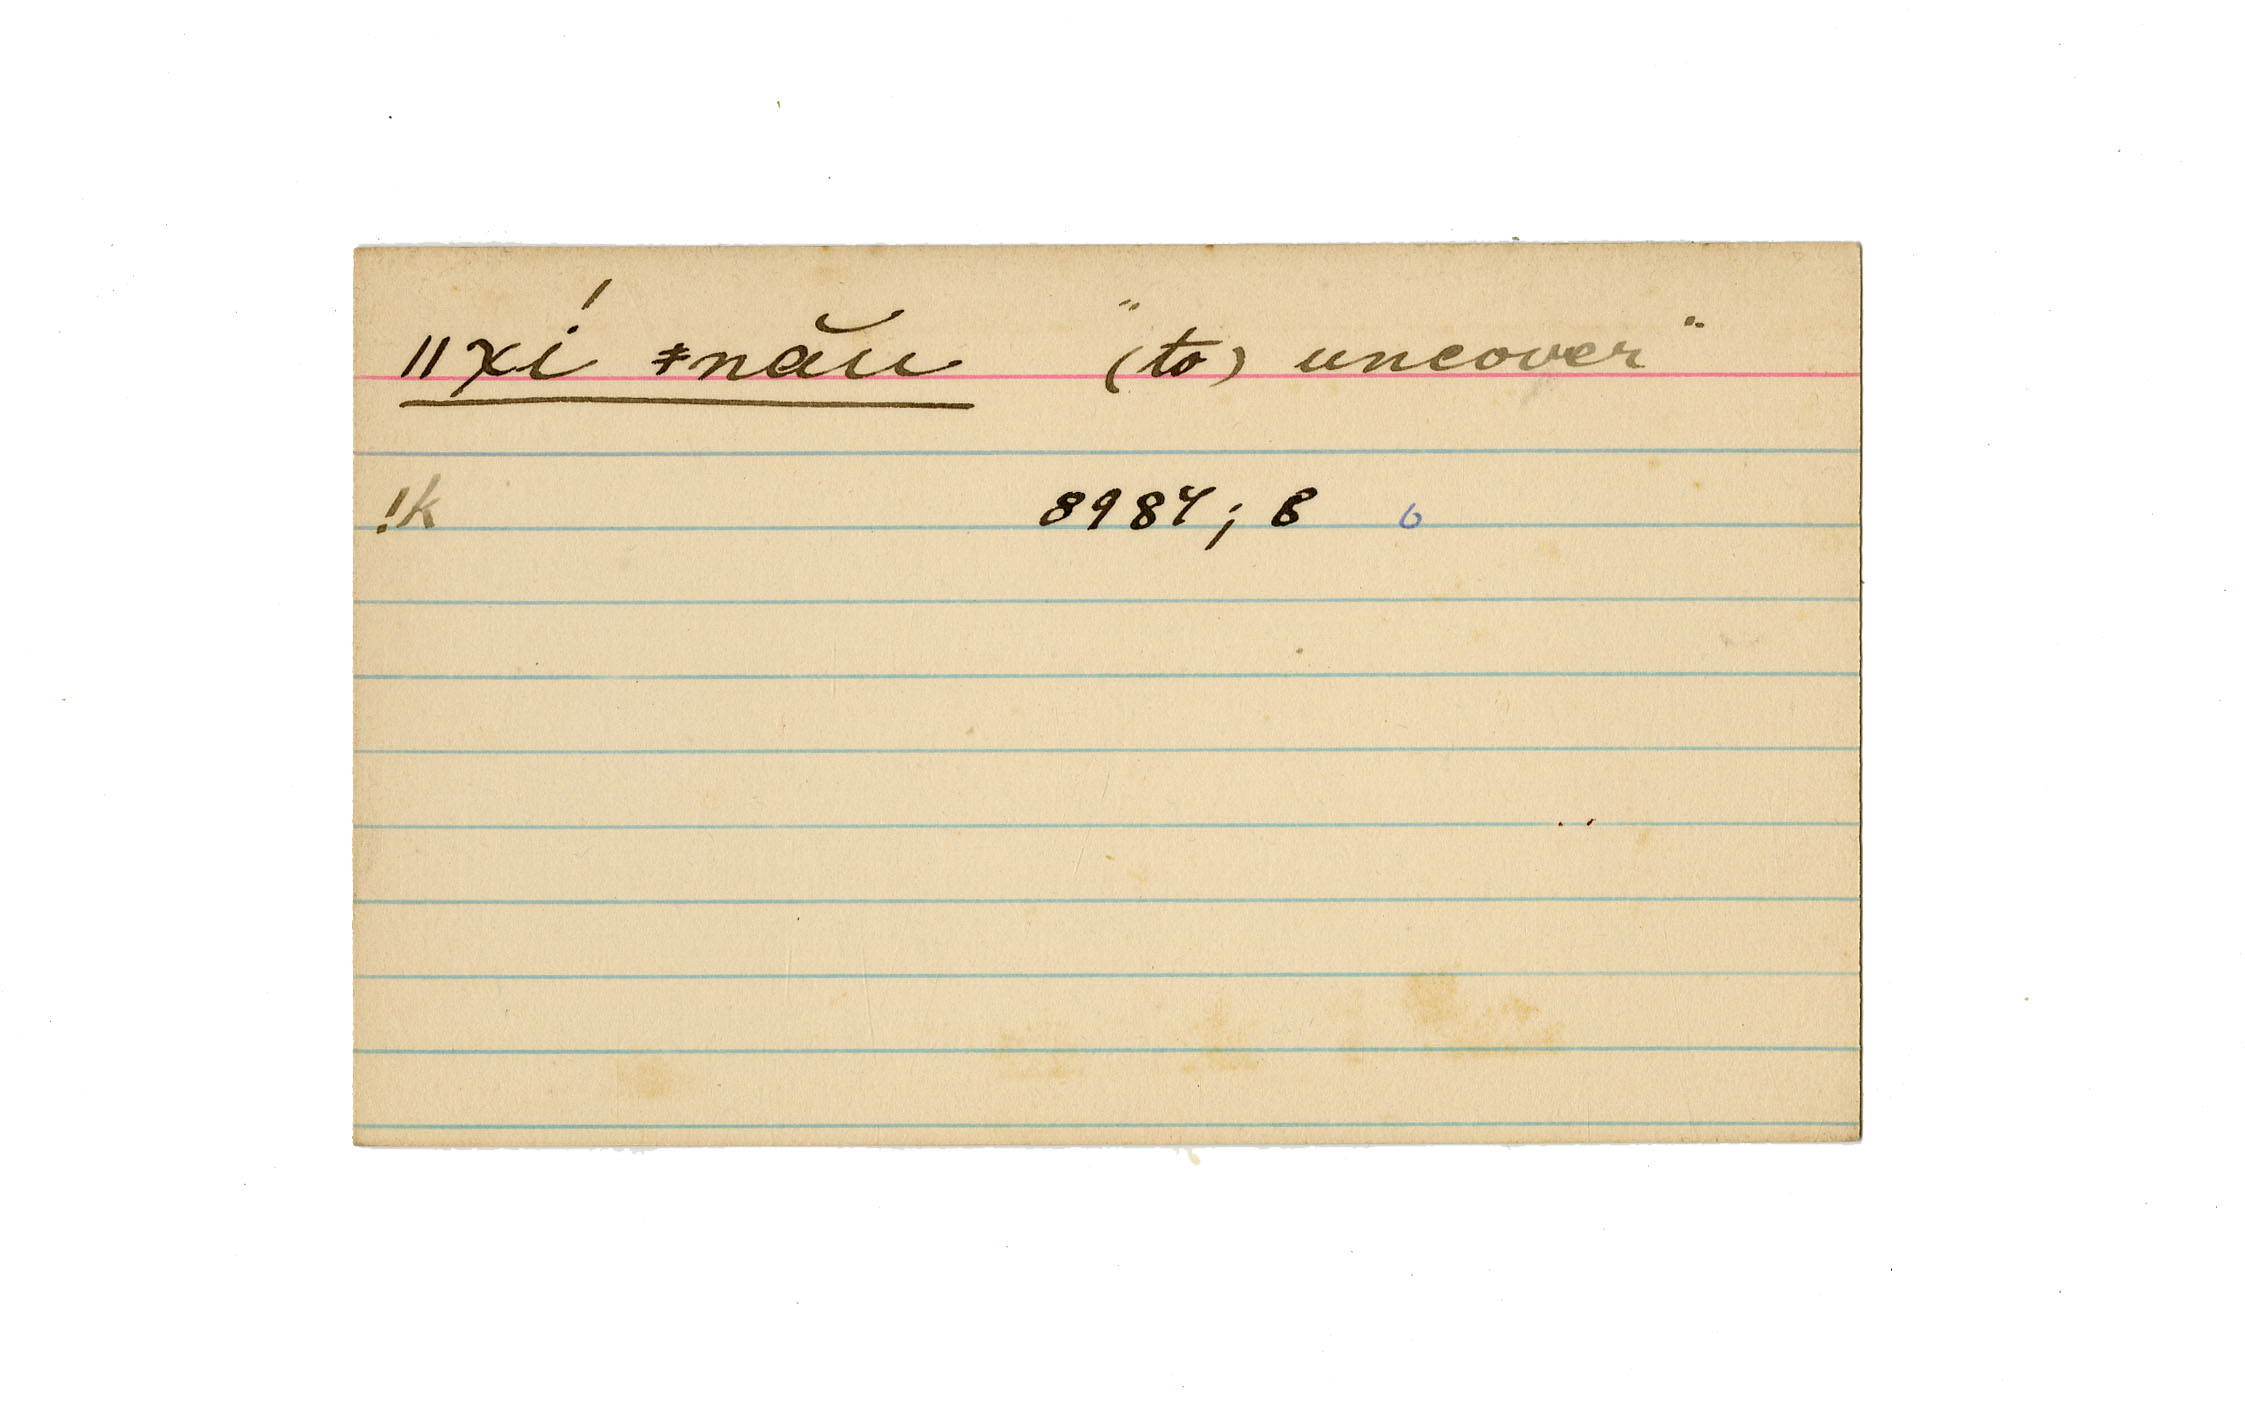 ǁxí ǂnău "(to) uncover"
!k 8984; B 6